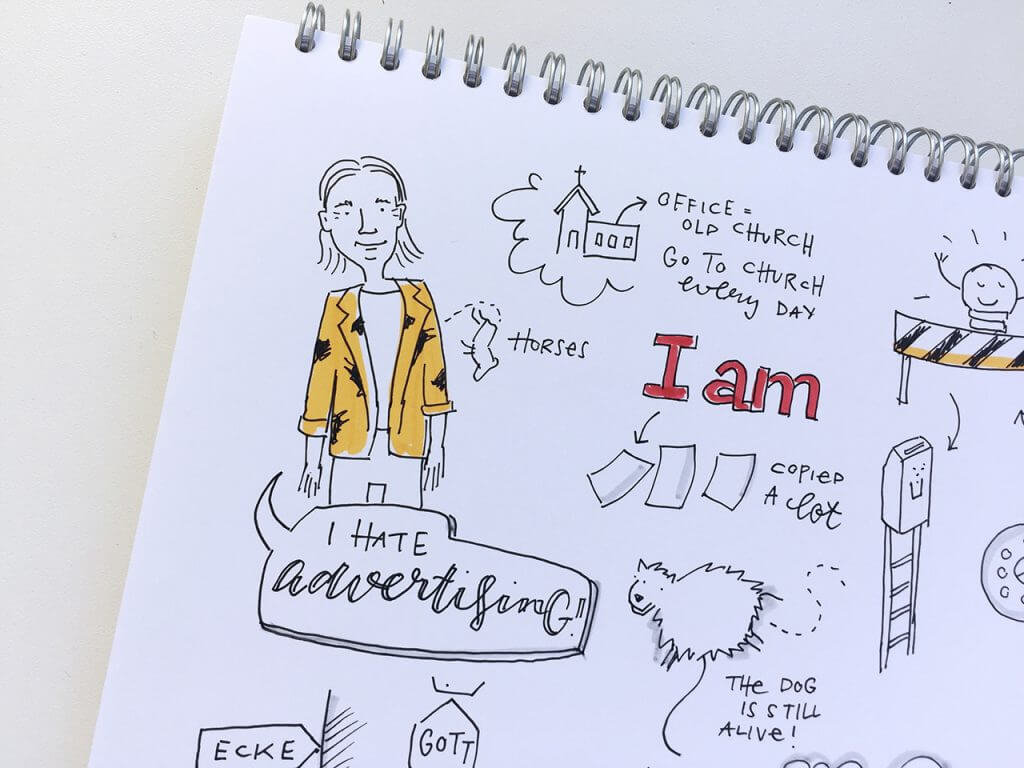 OFFICE =
OLD CHURCH
GO TO CHURCH
every DAY
HORSES
I am
COPIED
A lot
I HATE
advertising!!
THE DOG
IS STILL
ALIVE!
ECKE
GOTT